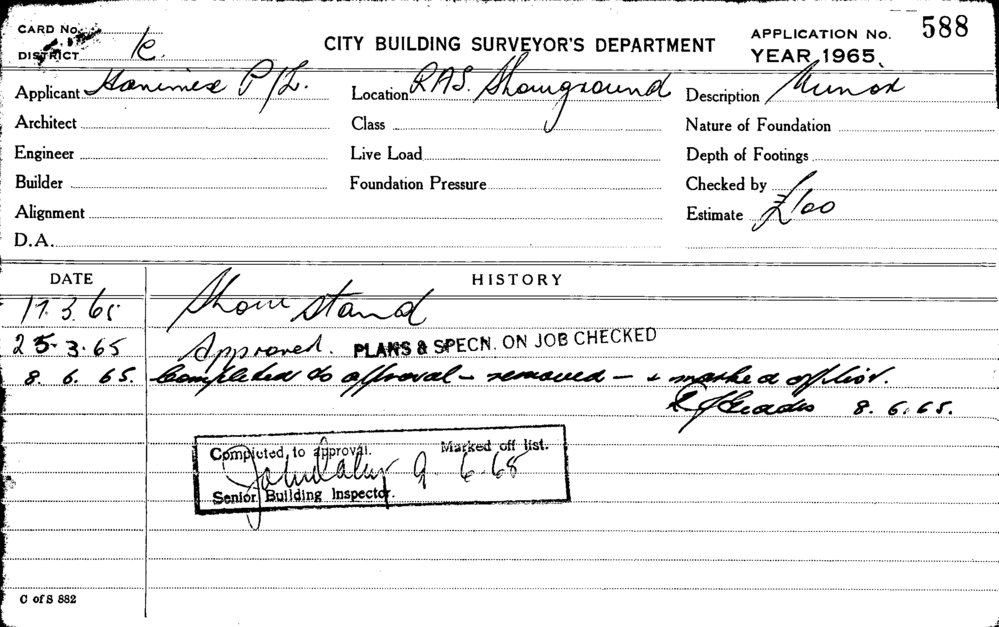 CARD No.
588
DISTRICT
CITY BUILDING SURVEYOR'S DEPARTMENT
APPLICATION No.
YEAR 1965
Applicant Hanimex P/L.
Location RAS. Showground
Description Minor
Architect
Class
Nature of Foundation
Engineer
Live Load
Depth of Footings
Builder
Foundation Pressure
Checked by
Alignment
Estimate £100
D.A.
DATE
HISTORY
17.3.65 Show stand
25.3.65 Approved. PLANS & SPECN. ON JOB CHECKED
8.6.65. Completed to approval - removed - & marked off list.
8.6.65.
Completed to approval. Marked off list.
9.6.65
Senior Building Inspector.
C of S 882